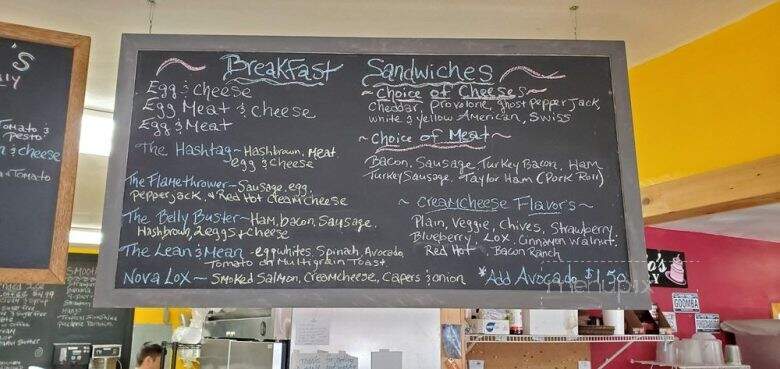 Breakfast Sandwiches
Egg & Cheese
Egg Meat & Cheese
Egg & Meat
The Hashtag ~ Hashbrown, Meat
egg & Cheese
The Flamethrower ~ Sausage, egg,
pepperjack, & Red Hot Cleamcheese
The Belly Buster ~ Ham, bacon, Sausage,
Hashbrown, 2 eggs & cheese
The Lean & Mean - eggwhites, Spinach, Avocado
Tomato on Multigrain Toast
Nova Lox ~ Smoked Salmon, Creamcheese, Capers & onion
~ Choice of Cheeses ~
Cheddar, Provolone, ghost Pepper Jack,
white & yellow American, Swiss
~ Choice of Meat ~
Bacon, Sausage, Turkey Bacon, Ham
Turkey Sausage, Taylor Ham (Pork Roll)
~ Creamcheese Flavors ~
Plain, Veggie, Chives, Strawberry
Blueberry, Lox, Cinnamon walnut,
Red Hot Bacon Ranch
*Add Avocado $1.50
'S
Tomato &
Pesto
& cheese
& Tomato
GOOMBA
menupix